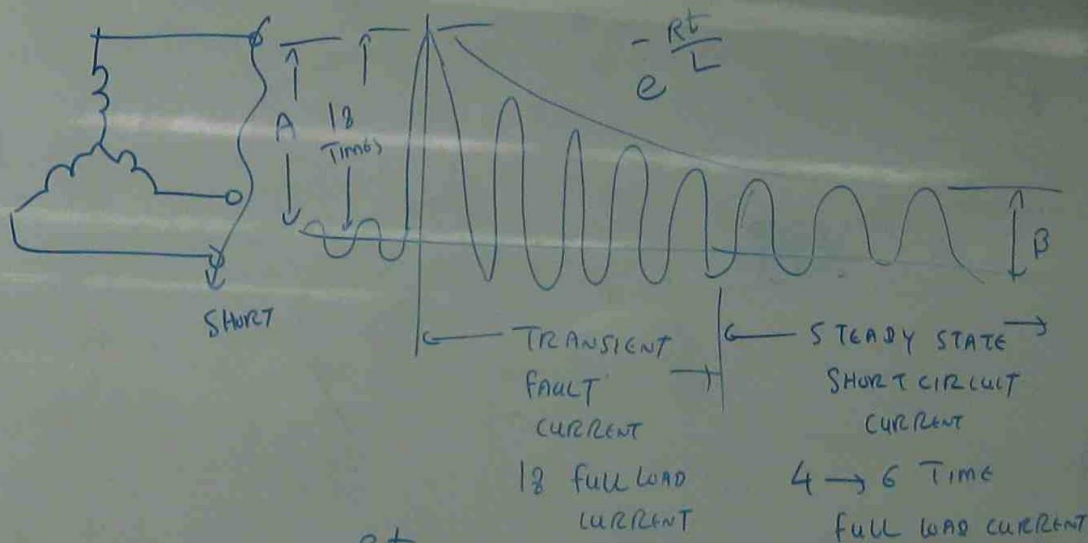 A
18
TIMES
e^{-Rt/L}
B
SHORT
TRANSIENT
FAULT
CURRENT
18 FULL LOAD
CURRENT
STEADY STATE
SHORT CIRCUIT
CURRENT
4 → 6 TIME
FULL LOAD CURRENT